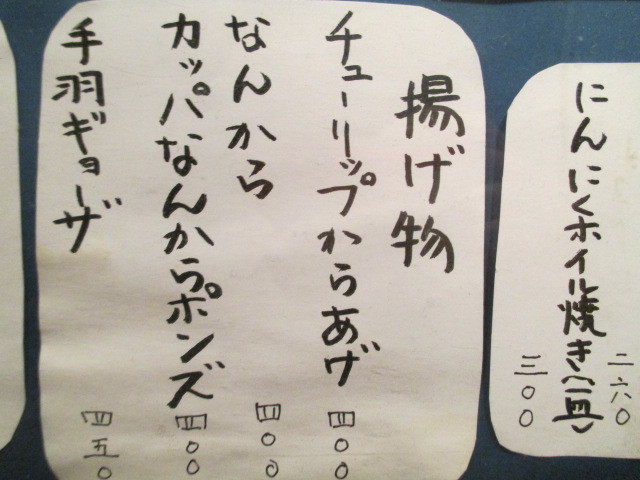 二六〇
にんにくホイル焼き(一皿)
三〇〇
揚げ物
チューリップからあげ 四〇〇
なんから 四〇〇
カッパなんからポンズ 四〇〇
手羽ギョーザ 四五〇